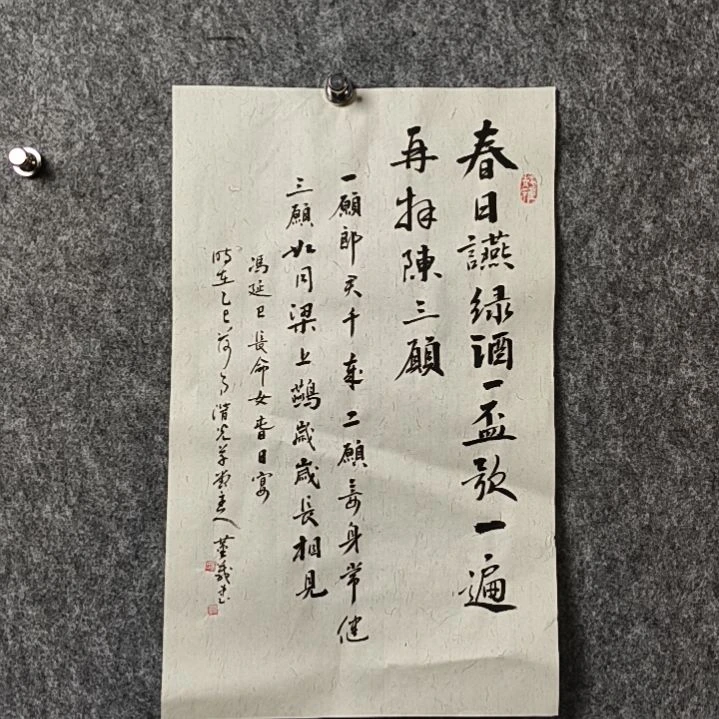 春日讌绿酒一盃歌一遍
再拜陳三願
一願郎君千歲二願妾身常健
三願如同梁上鷰歲歲長相見
馮延巳長命女春日宴
時在乙巳荷月潛光草堂主人